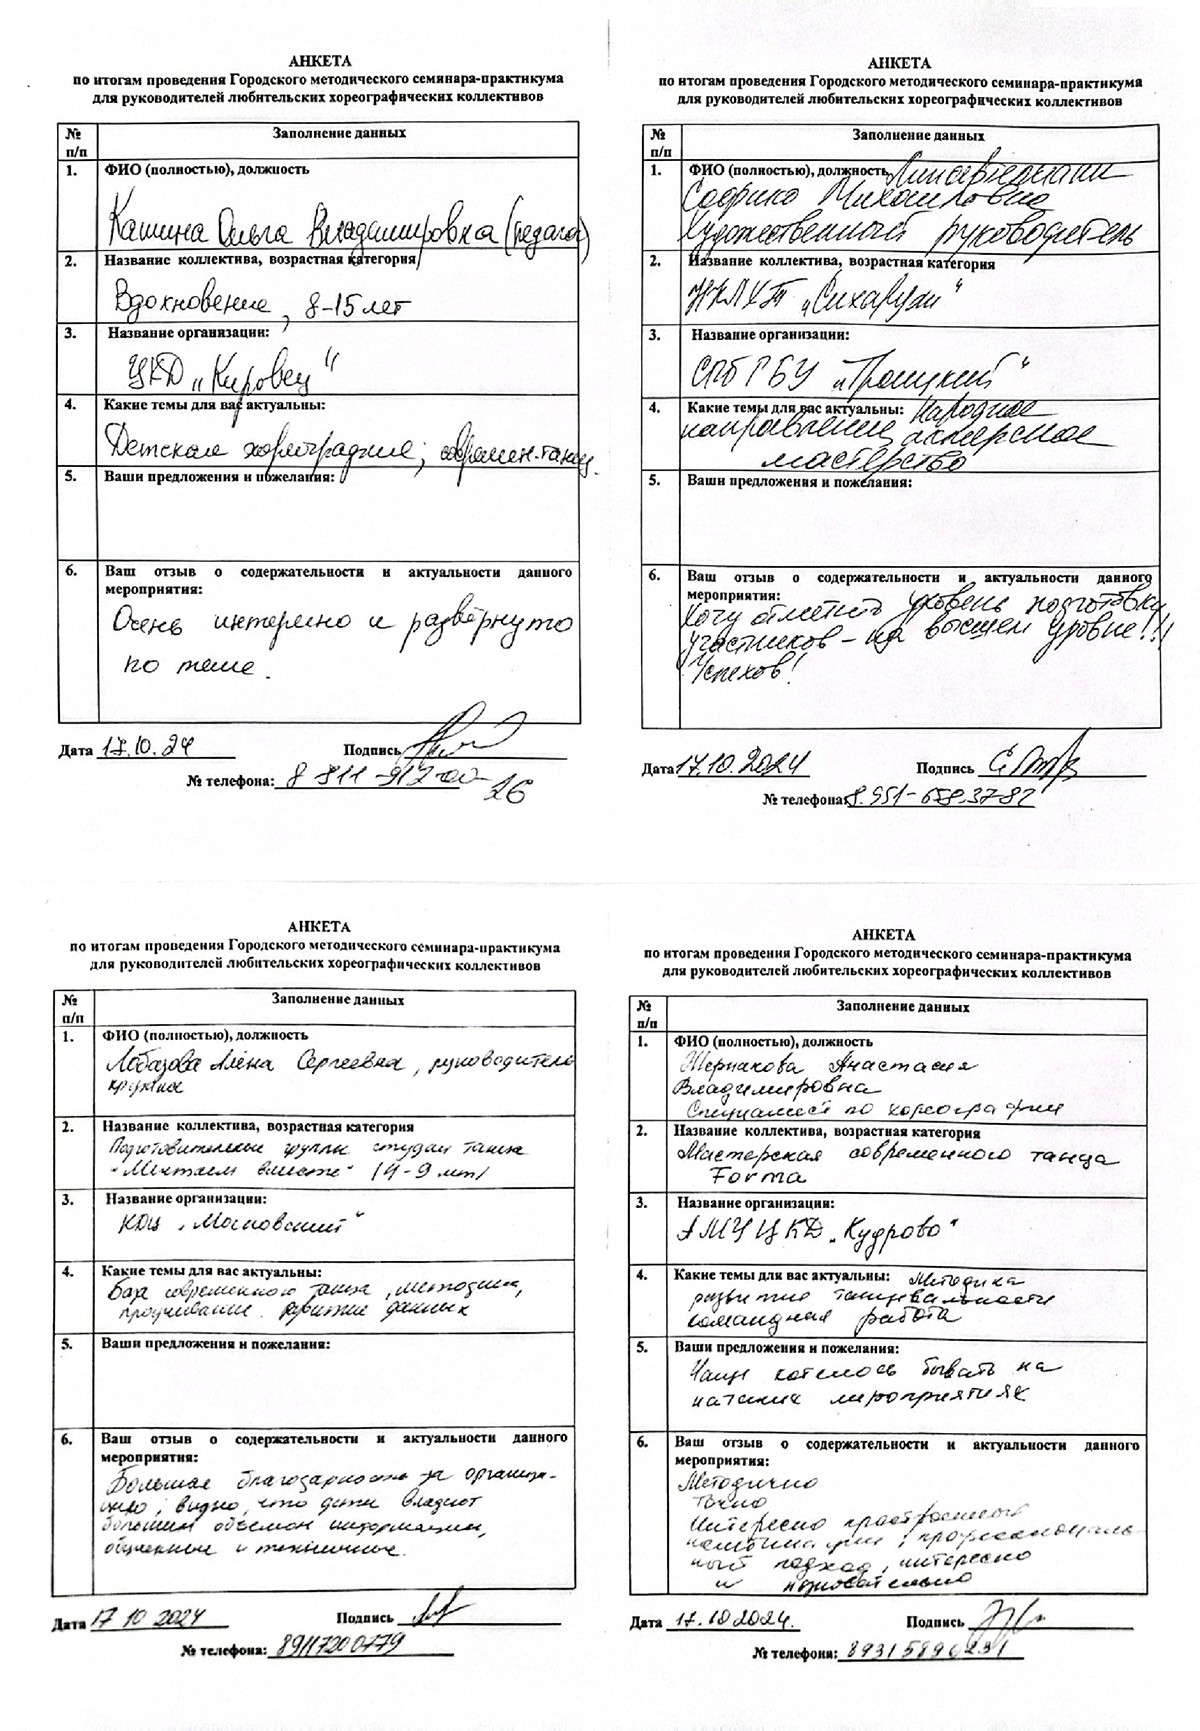 АНКЕТА
по итогам проведения Городского методического семинара-практикума
для руководителей любительских хореографических коллективов
№ п/п
Заполнение данных
1.
ФИО (полностью), должность
Кашина Ольга Владимировна (педагог)
2.
Название коллектива, возрастная категория
Вдохновение, 8-15 лет
3.
Название организации:
ЦКД „Кировец"
4.
Какие темы для вас актуальны:
Детская хореография; современ. танец.
5.
Ваши предложения и пожелания:
6.
Ваш отзыв о содержательности и актуальности данного
мероприятия:
Очень интересно и развёрнуто
по теме.
Дата 17.10.24
Подпись
№ телефона: 8 811-912-00-
26
АНКЕТА
по итогам проведения Городского методического семинара-практикума
для руководителей любительских хореографических коллективов
№ п/п
Заполнение данных
1.
ФИО (полностью), должность
Софико Михайловна
Художественный руководитель
2.
Название коллектива, возрастная категория
НКЛХТ „Сихарули"
3.
Название организации:
СПб ГБУ „Троицкий"
4.
Какие темы для вас актуальны: Народное
направление, актерское
мастерство
5.
Ваши предложения и пожелания:
6.
Ваш отзыв о содержательности и актуальности данного
мероприятия:
Хочу отметить уровень подготовки
участников - на высшем уровне!!!
Успехов!
Дата 17.10.2024
Подпись
№ телефона: 8.951-658.37-82
АНКЕТА
по итогам проведения Городского методического семинара-практикума
для руководителей любительских хореографических коллективов
№ п/п
Заполнение данных
1.
ФИО (полностью), должность
Лобазова Алёна Сергеевна, руководитель
кружка
2.
Название коллектива, возрастная категория
Подготовительные группы студии танца
"Мечтаем вместе" (4-9 лет)
3.
Название организации:
КДЦ „Московский"
4.
Какие темы для вас актуальны:
База современного танца, методика,
проучивание. развитие данных
5.
Ваши предложения и пожелания:
6.
Ваш отзыв о содержательности и актуальности данного
мероприятия:
Большая благодарность за организа-
цию, видно, что дети владеют
большим объемом информации,
обученные и техничные.
Дата 17 10 2024
Подпись
№ телефона: 89117200779
АНКЕТА
по итогам проведения Городского методического семинара-практикума
для руководителей любительских хореографических коллективов
№ п/п
Заполнение данных
1.
ФИО (полностью), должность
Анастасия
Владимировна
Специалист по хореографии
2.
Название коллектива, возрастная категория
Мастерская современного танца
Forma
3.
Название организации:
АМУ ЦКД „Кудрово"
4.
Какие темы для вас актуальны: Методика
развития танцевальности
командная работа
5.
Ваши предложения и пожелания:
Чаще хотелось бывать на
мероприятиях
6.
Ваш отзыв о содержательности и актуальности данного
мероприятия:
Методично
Точно
Интересно
профессиональ-
ный подход, интересно
и познавательно
Дата 17.10.2024.
Подпись
№ телефона: 89315896231